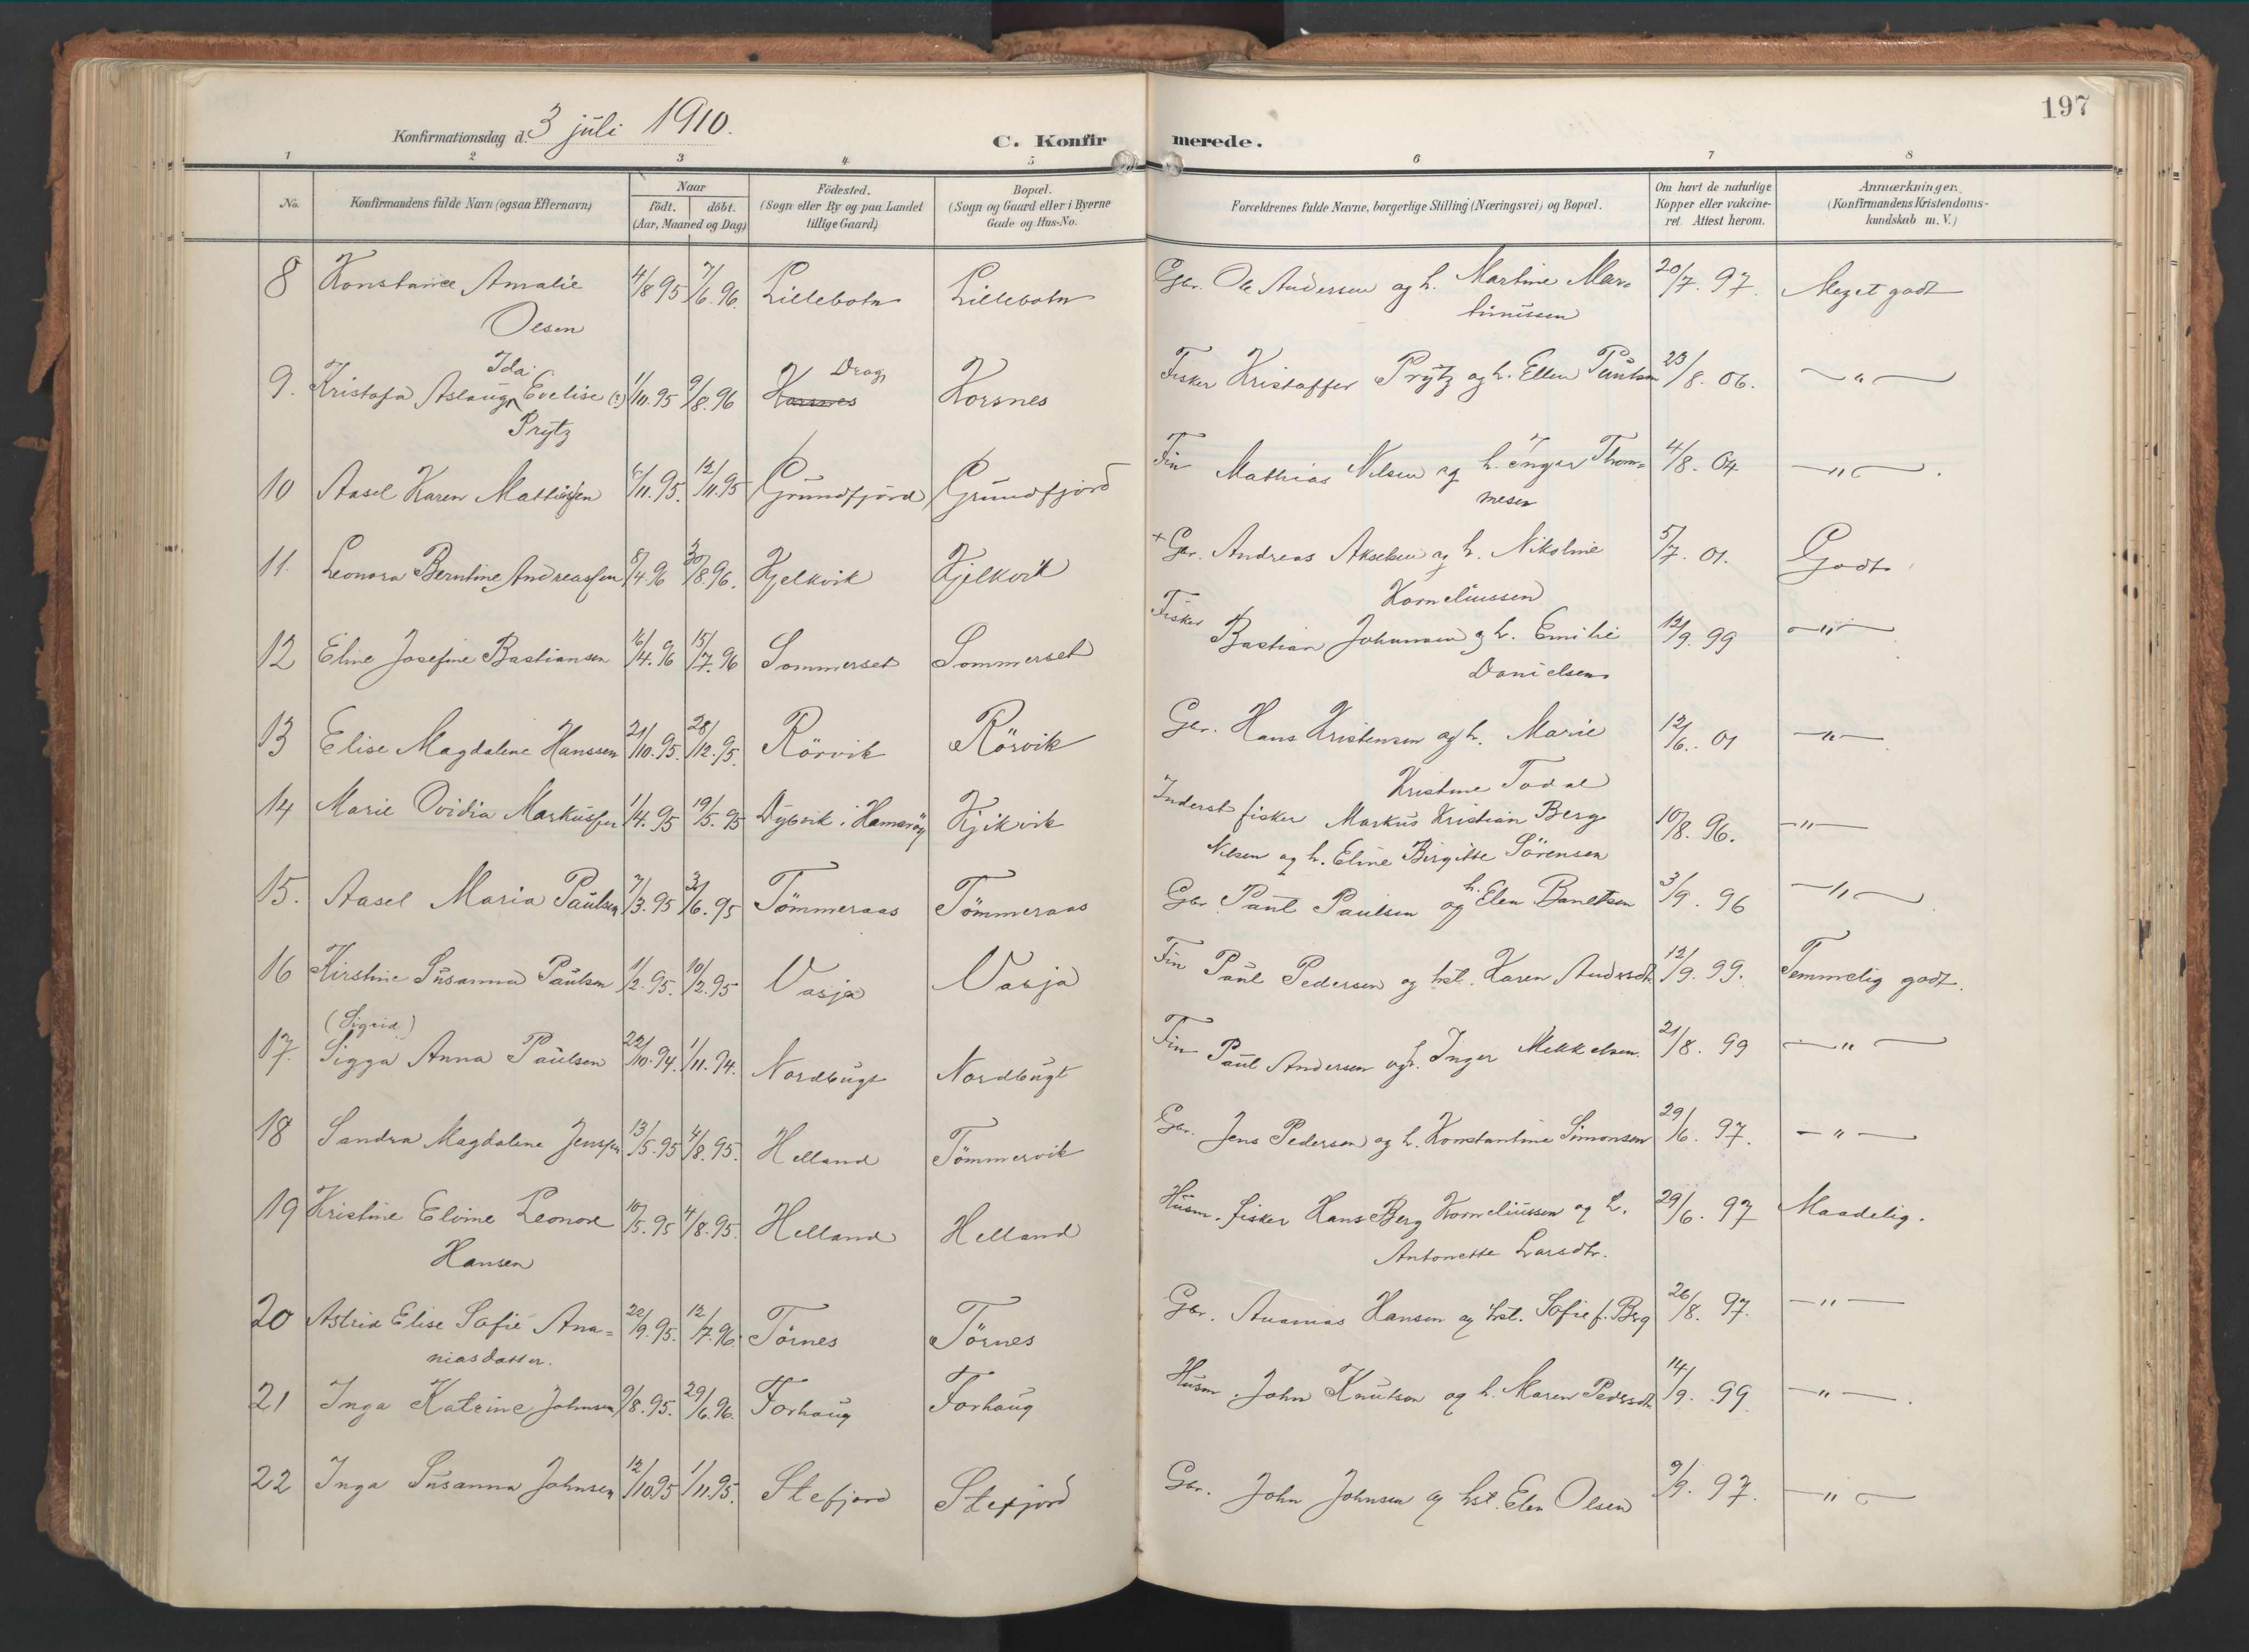 197
Konfirmationsdag d. 3 juli 1910.
C. Konfirmerede.
1 2 3 4 5 6 7 8
No. Konfirmandens fulde Navn (ogsaa Efternavn) Naar født. døbt. (Aar, Maaned og Dag) Fødested. (Sogn eller By og paa Landet tillige Gaard) Bopæl. (Sogn og Gaard eller i Byerne Gade og Hus-No. Forældrenes fulde Navne, borgerlige Stilling (Næringsvei) og Bopæl. Om havt de naturlige Kopper eller vakcineret. Attest herom. Anmærkninger. (Konfirmandens Kristendomskundskab m. V.)
8 Konstance Amalie 4/8 95 7/6. 96. Lillebotn Lillebotn Gbr. Ole Andersen og h. Martine Mar= 20/7. 97. Meget godt
Olsen tinussen
Ida Drag
9. Kristofa Aslaug Evelise (?) 1/11. 95 9/8. 96 Korsnes Korsnes Fisker Kristoffer Prytz og h. Ellen Paulsen 23/8. 06. — " —
Prytz
10 Aasel Karen Mathissen 6/11. 95. 12/11. 95 Grundfjord Grundfjord Fin Mathias Nilsen og h. Inger Thom= 4/8. 04 — " —
mesen
11. Leonora Berntine Andreassen 8/4. 96 30/8. 96. Kjelkvik Kjelkvik + Gbr. Andreas Akselsen og h. Nikoline 5/7. 01. Godt
Korneliussen
12 Eline Josefine Bastiansen 16/4. 96 15/7. 96 Sommerset Sommerset Fisker Bastian Johansen og h. Emilie 12/9. 99 — " —
Danielsen
13 Elise Magdalene Hanssen 21/10. 95. 28/12. 95. Rörvik Rörvik Gbr. Hans Kristensen og h. Marie 12/6. 01 — " —
Kristine Todal
14 Marie Ovidia Markussen 1/4. 95 19/5. 95 Dybvik i Hamarøy Kjikvik Inderst fisker Markus Kristian Berg 10/8. 96. — " —
Nilsen og h. Eline Birgitte Sörensen
15. Aasel Maria Paulsen 7/3. 95 3/6. 95 Tömmeraas Tömmeraas Gbr Paul Paulsen og h. Elen Bantsen 3/9. 96 — " —
16 Kirstine Susanna Paulsen 1/2. 95. 10/2. 95 Vasja Vasja Fin Paul Pedersen og hst. Karen Andersdtr. 12/9. 99. Temmelig godt.
(Sigrid)
17. Sigga Anna Paulsen 22/10. 94. 1/11. 94. Nordbugt Nordbugt Fin Paul Andersen og h. Inger Mekkelsen. 21/8. 99 — " —
18 Sandra Magdalene Jenssen 13/5. 95 4/8. 95. Helland Tömmervik Gbr. Jens Pedersen og h. Konstantine Simonsen 29/6. 97. — " —
19 Kristine Elvine Leonore 10/5. 95 4/8. 95. Helland Helland Husm. fisker Hans Berg Korneliussen og h. 29/6. 97 Maadelig.
Hansen Antonette Larsdtr.
20 Astrid Elise Sofie Ana= 22/9. 95. 12/7. 96. Törnes Törnes Gbr. Ananias Hansen og hst. Sofie f. Berg 26/8. 97. — " —
niasdatter.
21 Inga Katrine Johnsen 9/8. 95. 29/6. 96. Forhaug Forhaug Husm. John Knutson og h. Maren Pedersdtr. 14/9. 99 — " —.
22 Inga Susanna Johnsen 12/10. 95 1/11. 95. Stefjord Stefjord Gbr. John Johnsen og hst. Elen Olsen 9/9. 97. — " —